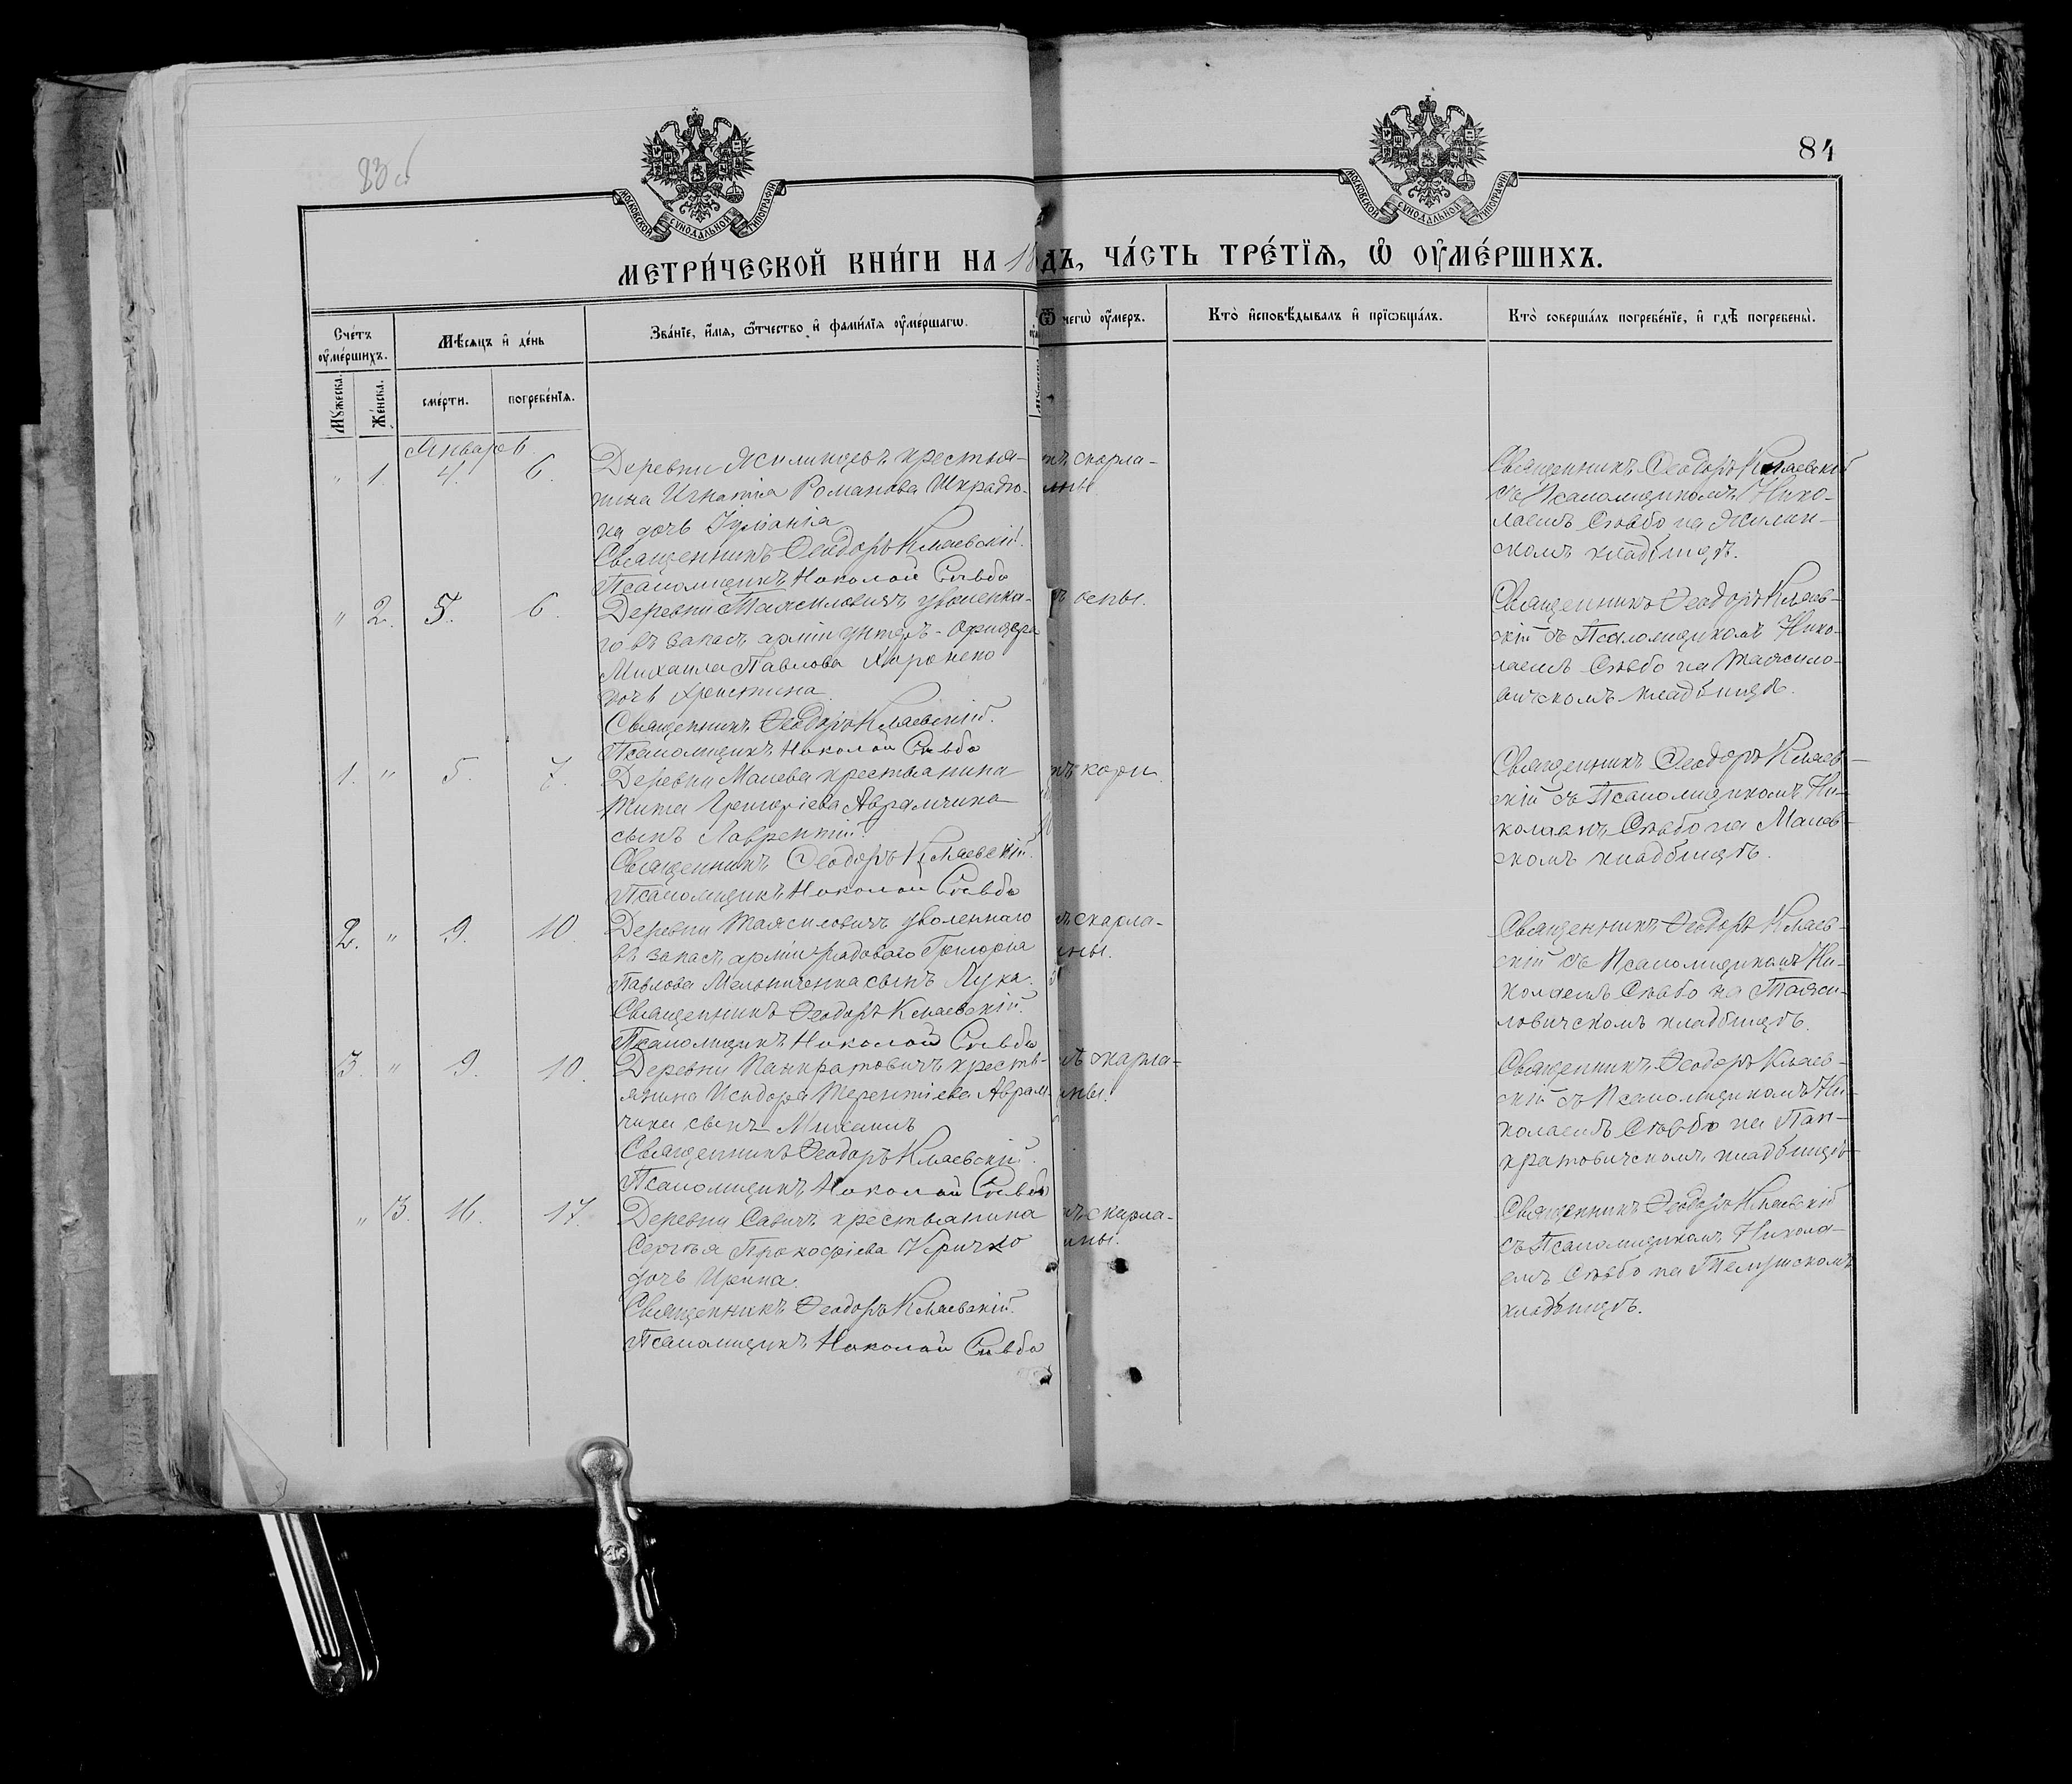 83 об
84
МОСКОВСКОЙ СѴНОДАЛЬНОЙ ТИПОГРАФІИ
МОСКОВСКОЙ СѴНОДАЛЬНОЙ ТИПОГРАФІИ
МЕТРИ́ЧЕСКОЙ КНИ́ГИ НА 18
дъ, ЧА́СТЬ ТРЕ́ТЇѦ, Ѽ ОУ҆МЕ́РШИХЪ.
Сче́тъ оу҆ме́ршихъ.
Мѣ́сѧцъ и҆ де́нь
Зва́нїе, и҆́мѧ, ѻ҆́тчество и҆ фами́лїѧ оу҆ме́ршагѡ.
Ѿ чегѡ̀ оу҆́меръ.
Кто̀ и҆сповѣ́дывалъ и҆ прїѡбща́лъ.
Кто̀ соверша́лъ погребе́нїе, и҆ гдѣ̀ погребены̀.
Мꙋ́жеска.
Же́нска.
сме́рти.
погребе́нїѧ.
Январь
" 1. 4. 6.
Деревни Ясилинцевъ крестья-
нина Игнатія Романова Шкрадю-
на дочь Іуліанія
Священникъ Ѳеодоръ Клаевскій.
Псаломщикъ Николай Сѣвбо
скарла-
ины.
Священникъ Ѳеодоръ Клаевскій
съ Псаломщикомъ Нико-
лаемъ Сѣвбо на
скомъ кладбищѣ.
" 2. 5. 6.
Деревни уволенна-
го въ запасъ арміи унтеръ-офицера
Михаила Павлова Хиронено
дочь Христина
Священникъ Ѳеодоръ Клаевскій.
Псаломщикъ Николай Сѣвбо
ъ оспы.
Священникъ Ѳеодоръ Клаев-
скій съ Псаломщикомъ Нико-
лаемъ Сѣвбо на
вичскомъ кладбищѣ.
1. " 5. 7.
Деревни Малева крестьянина
Тита Григоріева Аврамчика
сынъ Лаврентій.
Священникъ Ѳеодоръ Клаевскій.
Псаломщикъ Николай Сѣвбо
тъ кори
Священникъ Ѳеодоръ Клаев-
скій съ Псаломщикомъ Ни-
колаемъ Сѣвбо на Малев-
скомъ кладбищѣ.
2. " 9. 10.
Деревни уволеннаго
въ запасъ арміи рядоваго Григорія
Павлова Мельниченка сынъ Лука.
Священникъ Ѳеодоръ Клаевскій.
Псаломщикъ Николай Сѣвбо
ъ скарла-
ины.
Священникъ Ѳеодоръ Клаев-
скій съ Псаломщикомъ Ни-
колаемъ Сѣвбо на
ловичскомъ кладбищѣ.
3. " 9. 10.
Деревни Панкратовичъ кресть-
янина Исидора Терентіева Аврам-
чика сынъ Михаилъ
Священникъ Ѳеодоръ Клаевскій.
Псаломщикъ Николай Сѣвбо
ъ скарла-
ины.
Священникъ Ѳеодоръ Клаев-
скій съ Псаломщикомъ Ни-
колаемъ Сѣвбо на Пан-
кратовичскомъ кладбищѣ
" 3. 16. 17.
Деревни Савичъ крестьянина
Сергѣя Прокофіева Киричко
дочь Ирина.
Священникъ Ѳеодоръ Клаевскій.
Псаломщикъ Николай Сѣвбо
ъ скарла-
ины.
Священникъ Ѳеодоръ Клаевскій
съ Псаломщикомъ Никола-
емъ Сѣвбо на Телушскомъ
кладбищѣ.